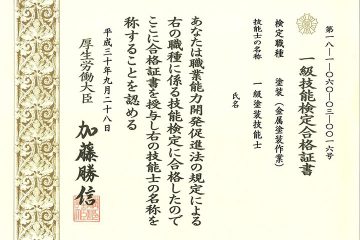 第一八-一-〇六〇-〇三-〇〇一六号
一級技能検定合格証書
検定職種　塗装（金属塗装作業）
技能士の名称　一級塗装技能士
氏名
あなたは職業能力開発促進法の規定による
右の職種に係る技能検定に合格したので
ここに合格証書を授与し右の技能士の名称を
称することを認める
平成三十年九月二十八日
厚生労働大臣　加藤勝信